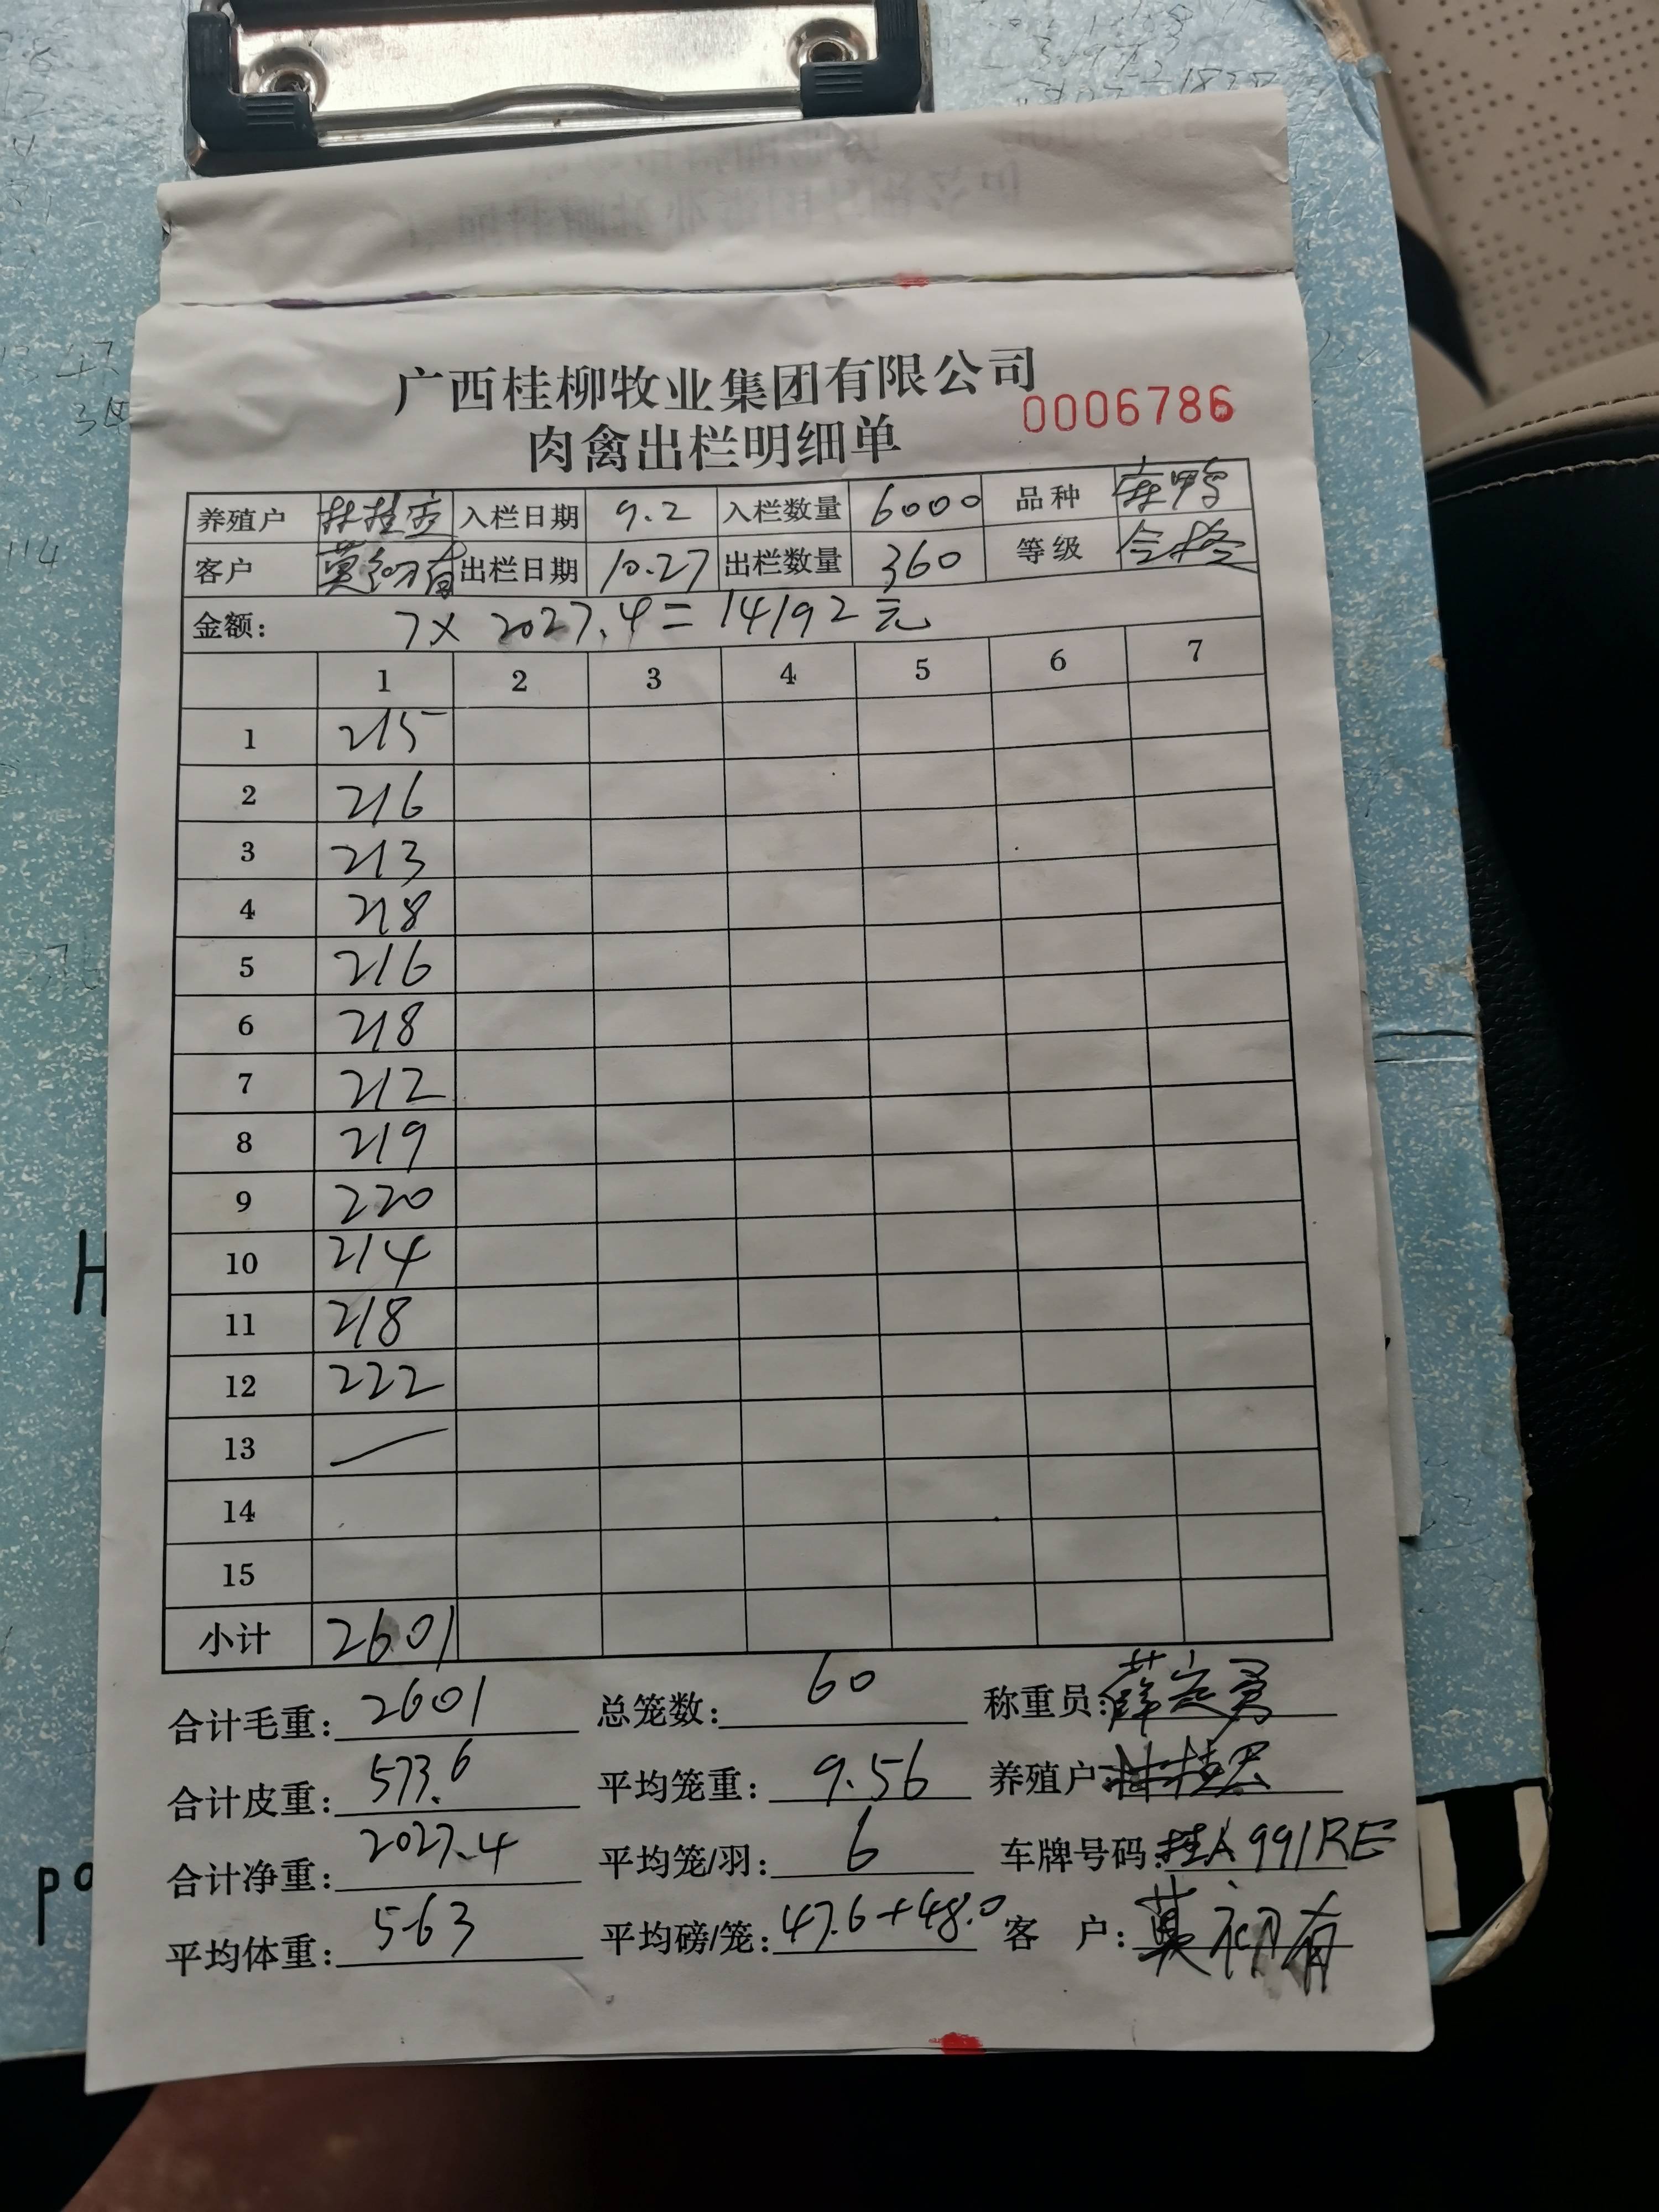 广西桂柳牧业集团有限公司
0006786
肉禽出栏明细单
养殖户 林桂宏 入栏日期 9.2 入栏数量 6000 品种 麻鸭
客户 莫初有 出栏日期 10.27 出栏数量 360 等级 合格
金额: 7× 2027.4=14192元
1 2 3 4 5 6 7
1 215
2 216
3 213
4 218
5 216
6 218
7 212
8 219
9 220
10 214
11 218
12 222
13
14
15
小计 2601
合计毛重: 2601 总笼数: 60 称重员: 薛定勇
合计皮重: 573.6 平均笼重: 9.56 养殖户: 林桂宏
合计净重: 2027.4 平均笼/羽: 6 车牌号码: 桂A991RE
平均体重: 5.63 平均磅/笼: 47.6+48.0 客 户: 莫初有